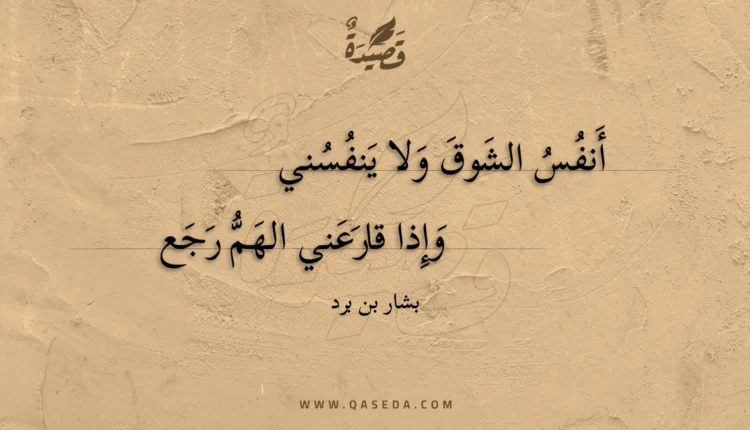 قَصِيدَةٌ
أَنفُسُ الشَوقَ وَلا يَنفُسُني
وَإِذا قارَعَني الهَمُّ رَجَع
بشار بن برد
WWW.QASEDA.COM